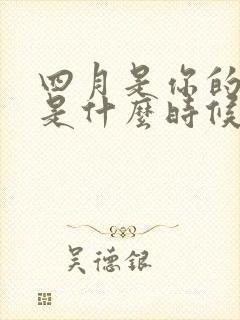 四月是你的
是什麼時候
吴德银